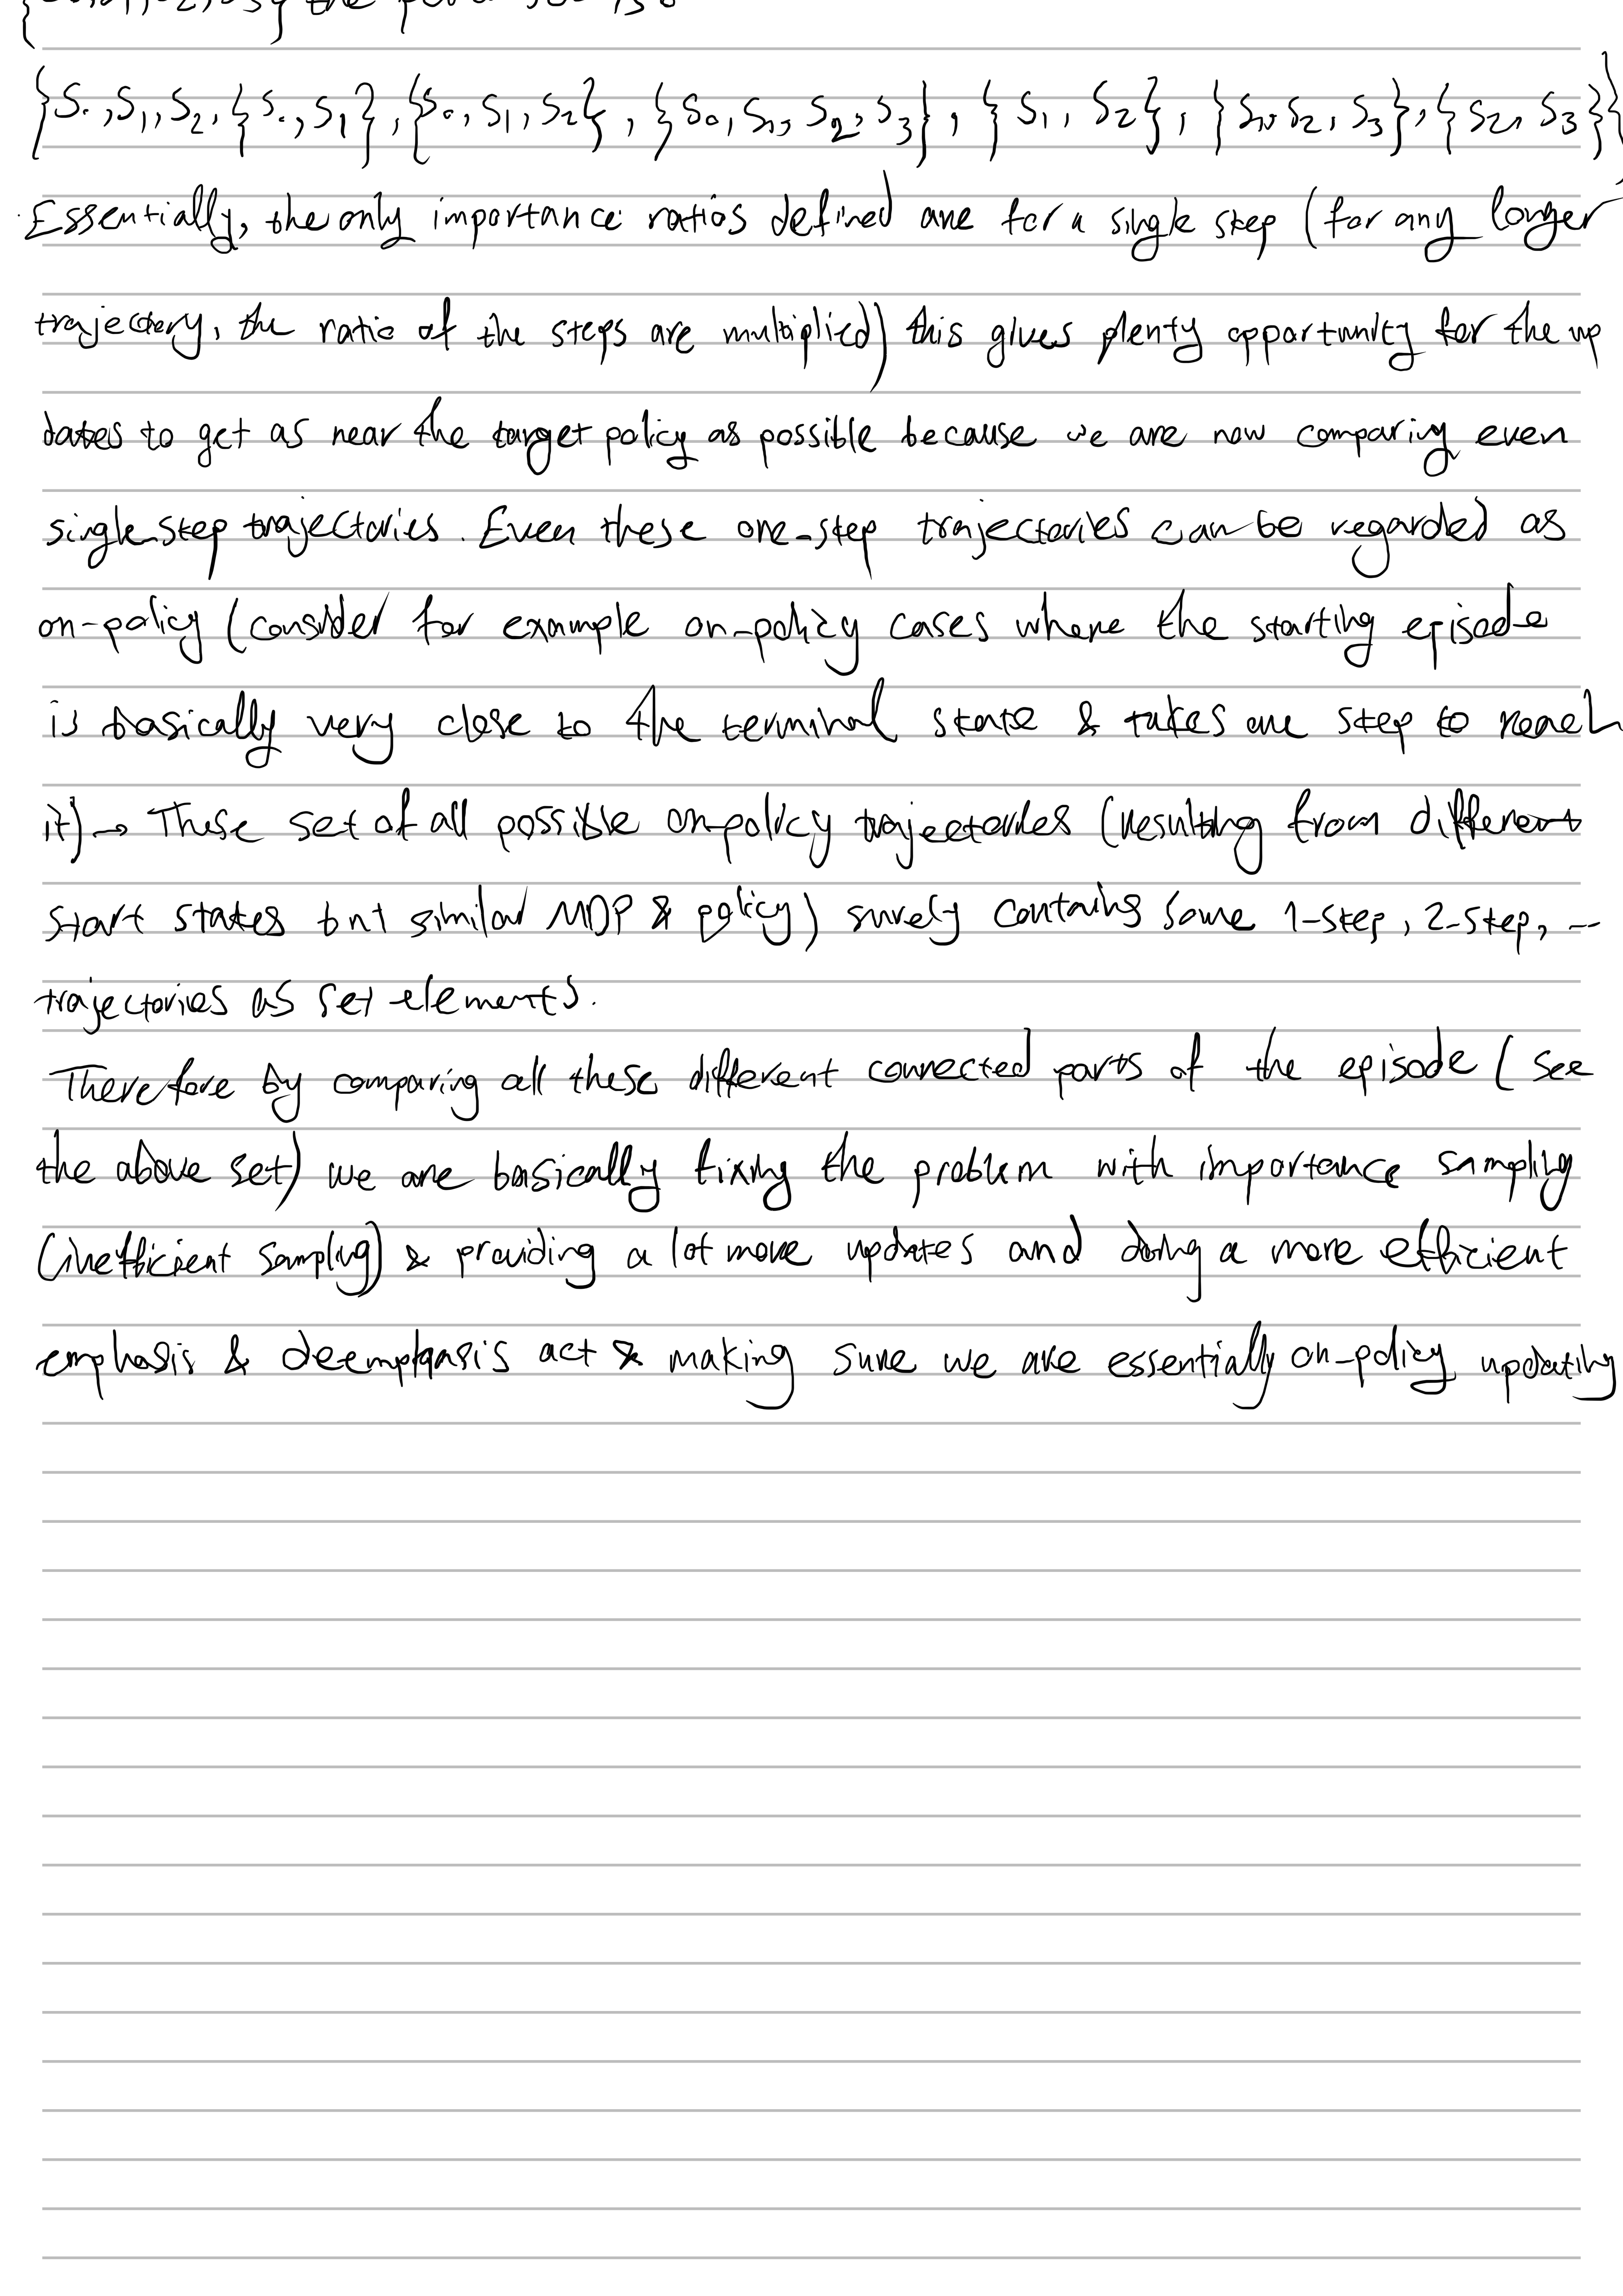 the
{S0, S1, S2, {S0, S1}, {S0, S1, S2}, {S0, S1, S2, S3}, {S1, S2}, {S1, S2, S3}, {S2, S3}}
Essentially, the only importance ratios defined are for a single step (for any longer
trajectory, the ratio of the steps are multiplied) this gives plenty opportunity for the up
dates to get as near the target policy as possible because we are now comparing even
single-step trajectories. Even these one-step trajectories can be regarded as
on-policy (consider for example on-policy cases where the starting episode
is basically very close to the terminal state & takes one step to reach
it) → These set of all possible on-policy trajectories (resulting from different
start states but similar MDP & policy) surely contains some 1-step, 2-step, ...
trajectories as set elements.
Therefore by comparing all these different connected parts of the episode (see
the above set) we are basically fixing the problem with importance sampling
(inefficient sampling) & providing a lot more updates and doing a more efficient
emphasis & deemphasis act & making sure we are essentially on-policy updating